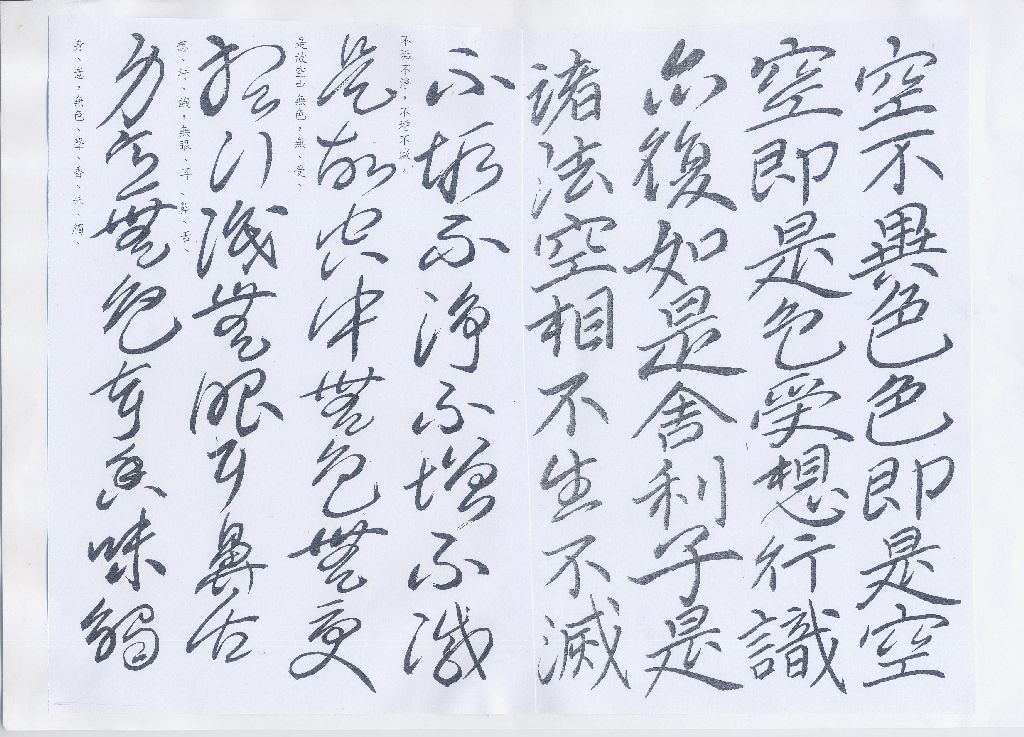 空不異色色即是空
空即是色受想行識
亦復如是舍利子是
諸法空相不生不滅
不垢不淨不增不減
不垢不淨,不增不減。
是故空中無色無受
是故空中無色,無、受、
想行識無眼耳鼻舌
想、行、識,無眼、耳、鼻、舌、
身意無色聲香味觸
身、意,無色、聲、香、味、觸、